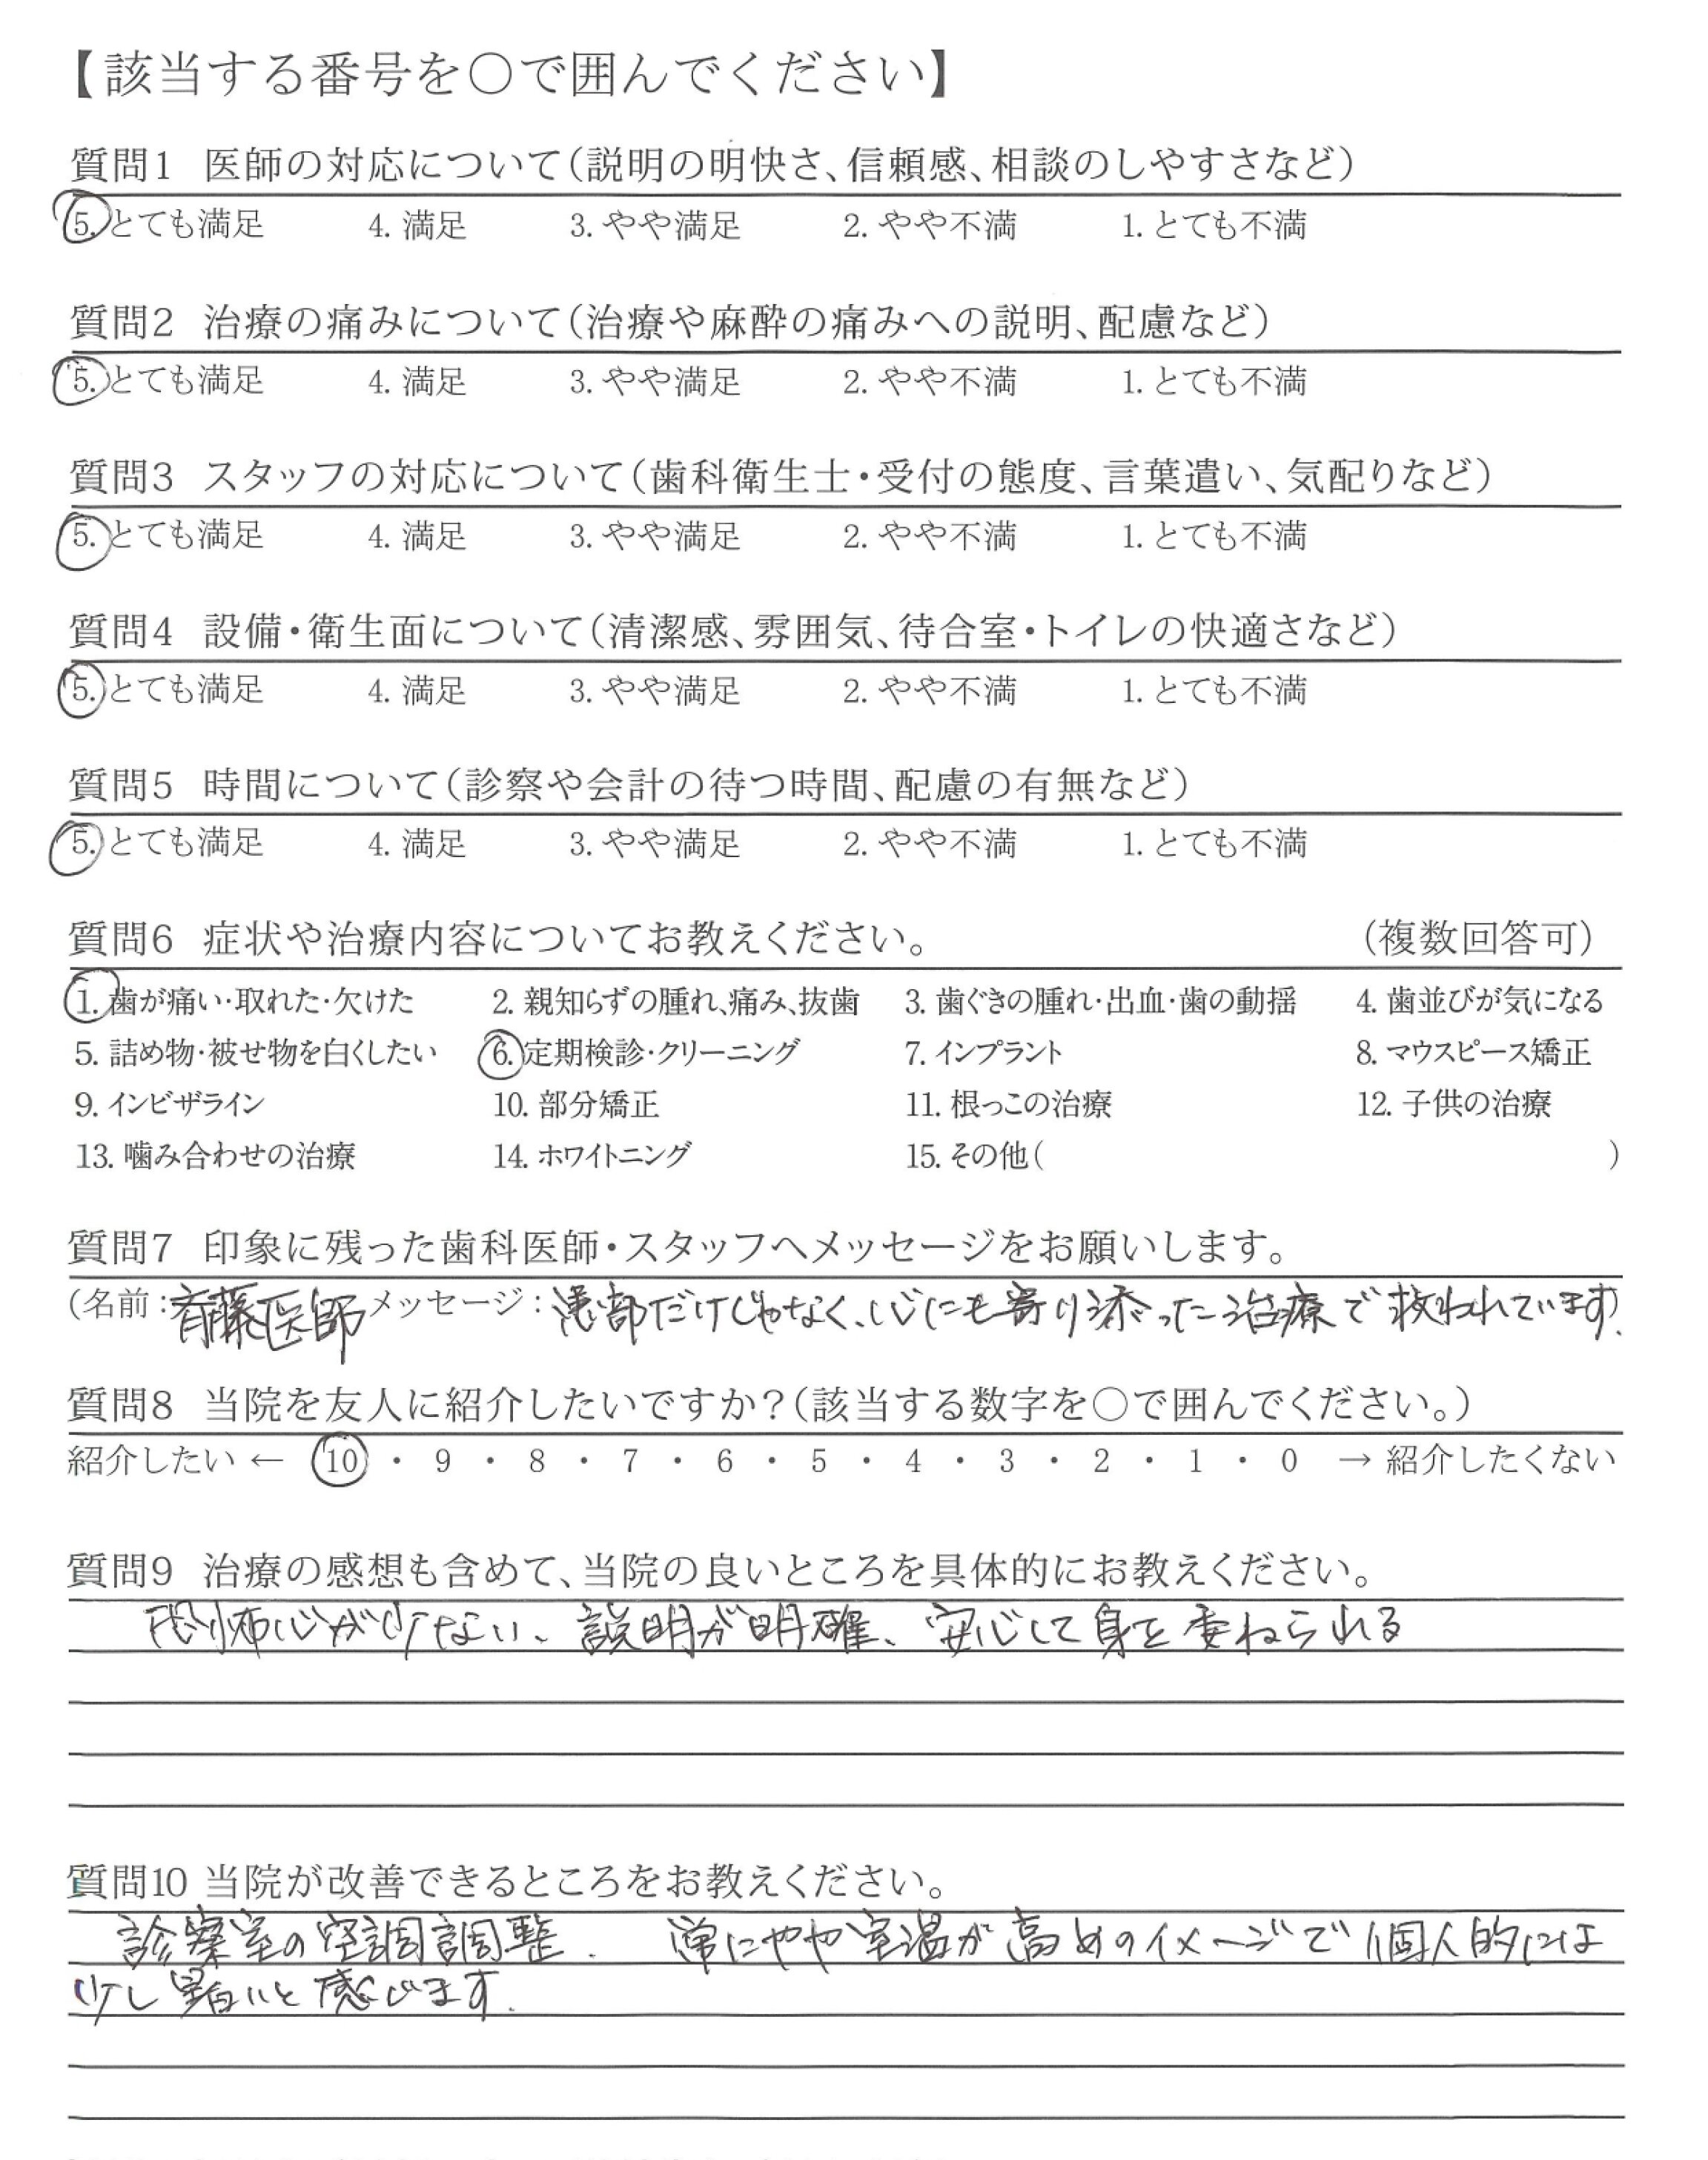 【該当する番号を〇で囲んでください】
質問1 医師の対応について（説明の明快さ、信頼感、相談のしやすさなど）
5. とても満足 4. 満足 3. やや満足 2. やや不満 1. とても不満
質問2 治療の痛みについて（治療や麻酔の痛みへの説明、配慮など）
5. とても満足 4. 満足 3. やや満足 2. やや不満 1. とても不満
質問3 スタッフの対応について（歯科衛生士・受付の態度、言葉遣い、気配りなど）
5. とても満足 4. 満足 3. やや満足 2. やや不満 1. とても不満
質問4 設備・衛生面について（清潔感、雰囲気、待合室・トイレの快適さなど）
5. とても満足 4. 満足 3. やや満足 2. やや不満 1. とても不満
質問5 時間について（診察や会計の待つ時間、配慮の有無など）
5. とても満足 4. 満足 3. やや満足 2. やや不満 1. とても不満
質問6 症状や治療内容についてお教えください。 （複数回答可）
1. 歯が痛い・取れた・欠けた 2. 親知らずの腫れ、痛み、抜歯 3. 歯ぐきの腫れ・出血・歯の動揺 4. 歯並びが気になる
5. 詰め物・被せ物を白くしたい 6. 定期検診・クリーニング 7. インプラント 8. マウスピース矯正
9. インビザライン 10. 部分矯正 11. 根っこの治療 12. 子供の治療
13. 噛み合わせの治療 14. ホワイトニング 15. その他（ ）
質問7 印象に残った歯科医師・スタッフへメッセージをお願いします。
（名前：斉藤医師 メッセージ：患部だけじゃなく、心にも寄り添った治療で救われています）.
質問8 当院を友人に紹介したいですか？（該当する数字を〇で囲んでください。）
紹介したい ← 10 ・ 9 ・ 8 ・ 7 ・ 6 ・ 5 ・ 4 ・ 3 ・ 2 ・ 1 ・ 0 → 紹介したくない
質問9 治療の感想も含めて、当院の良いところを具体的にお教えください。
恐怖心が少ない、説明が明確、安心して身を委ねられる
質問10 当院が改善できるところをお教えください。
診察室の空調調整. 常にやや室温が高めのイメージで個人的には
少し暑いと感じます.